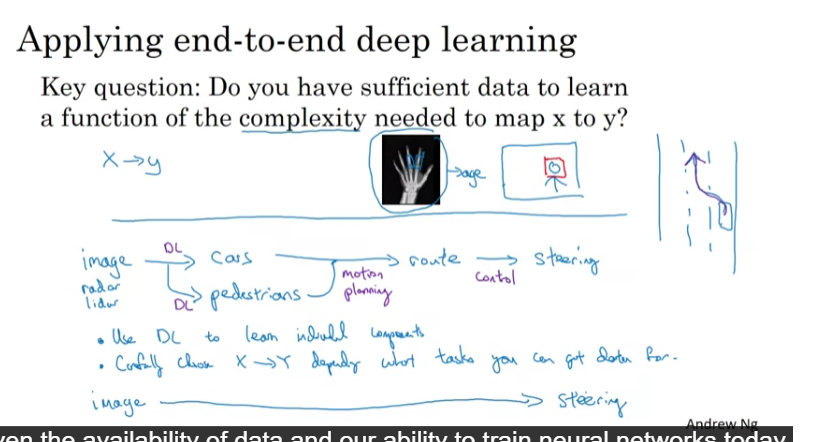 Applying end-to-end deep learning
Key question: Do you have sufficient data to learn
a function of the complexity needed to map x to y?
X → y
→ age
image DL → cars → route → steering
radar
lidar
DL → pedestrians
motion
planning
control
• Use DL to learn individual components
• Carefully choose X → Y depending what tasks you can get data for.
image → steering
Andrew Ng
en the availability of data and our ability to train neural networks today